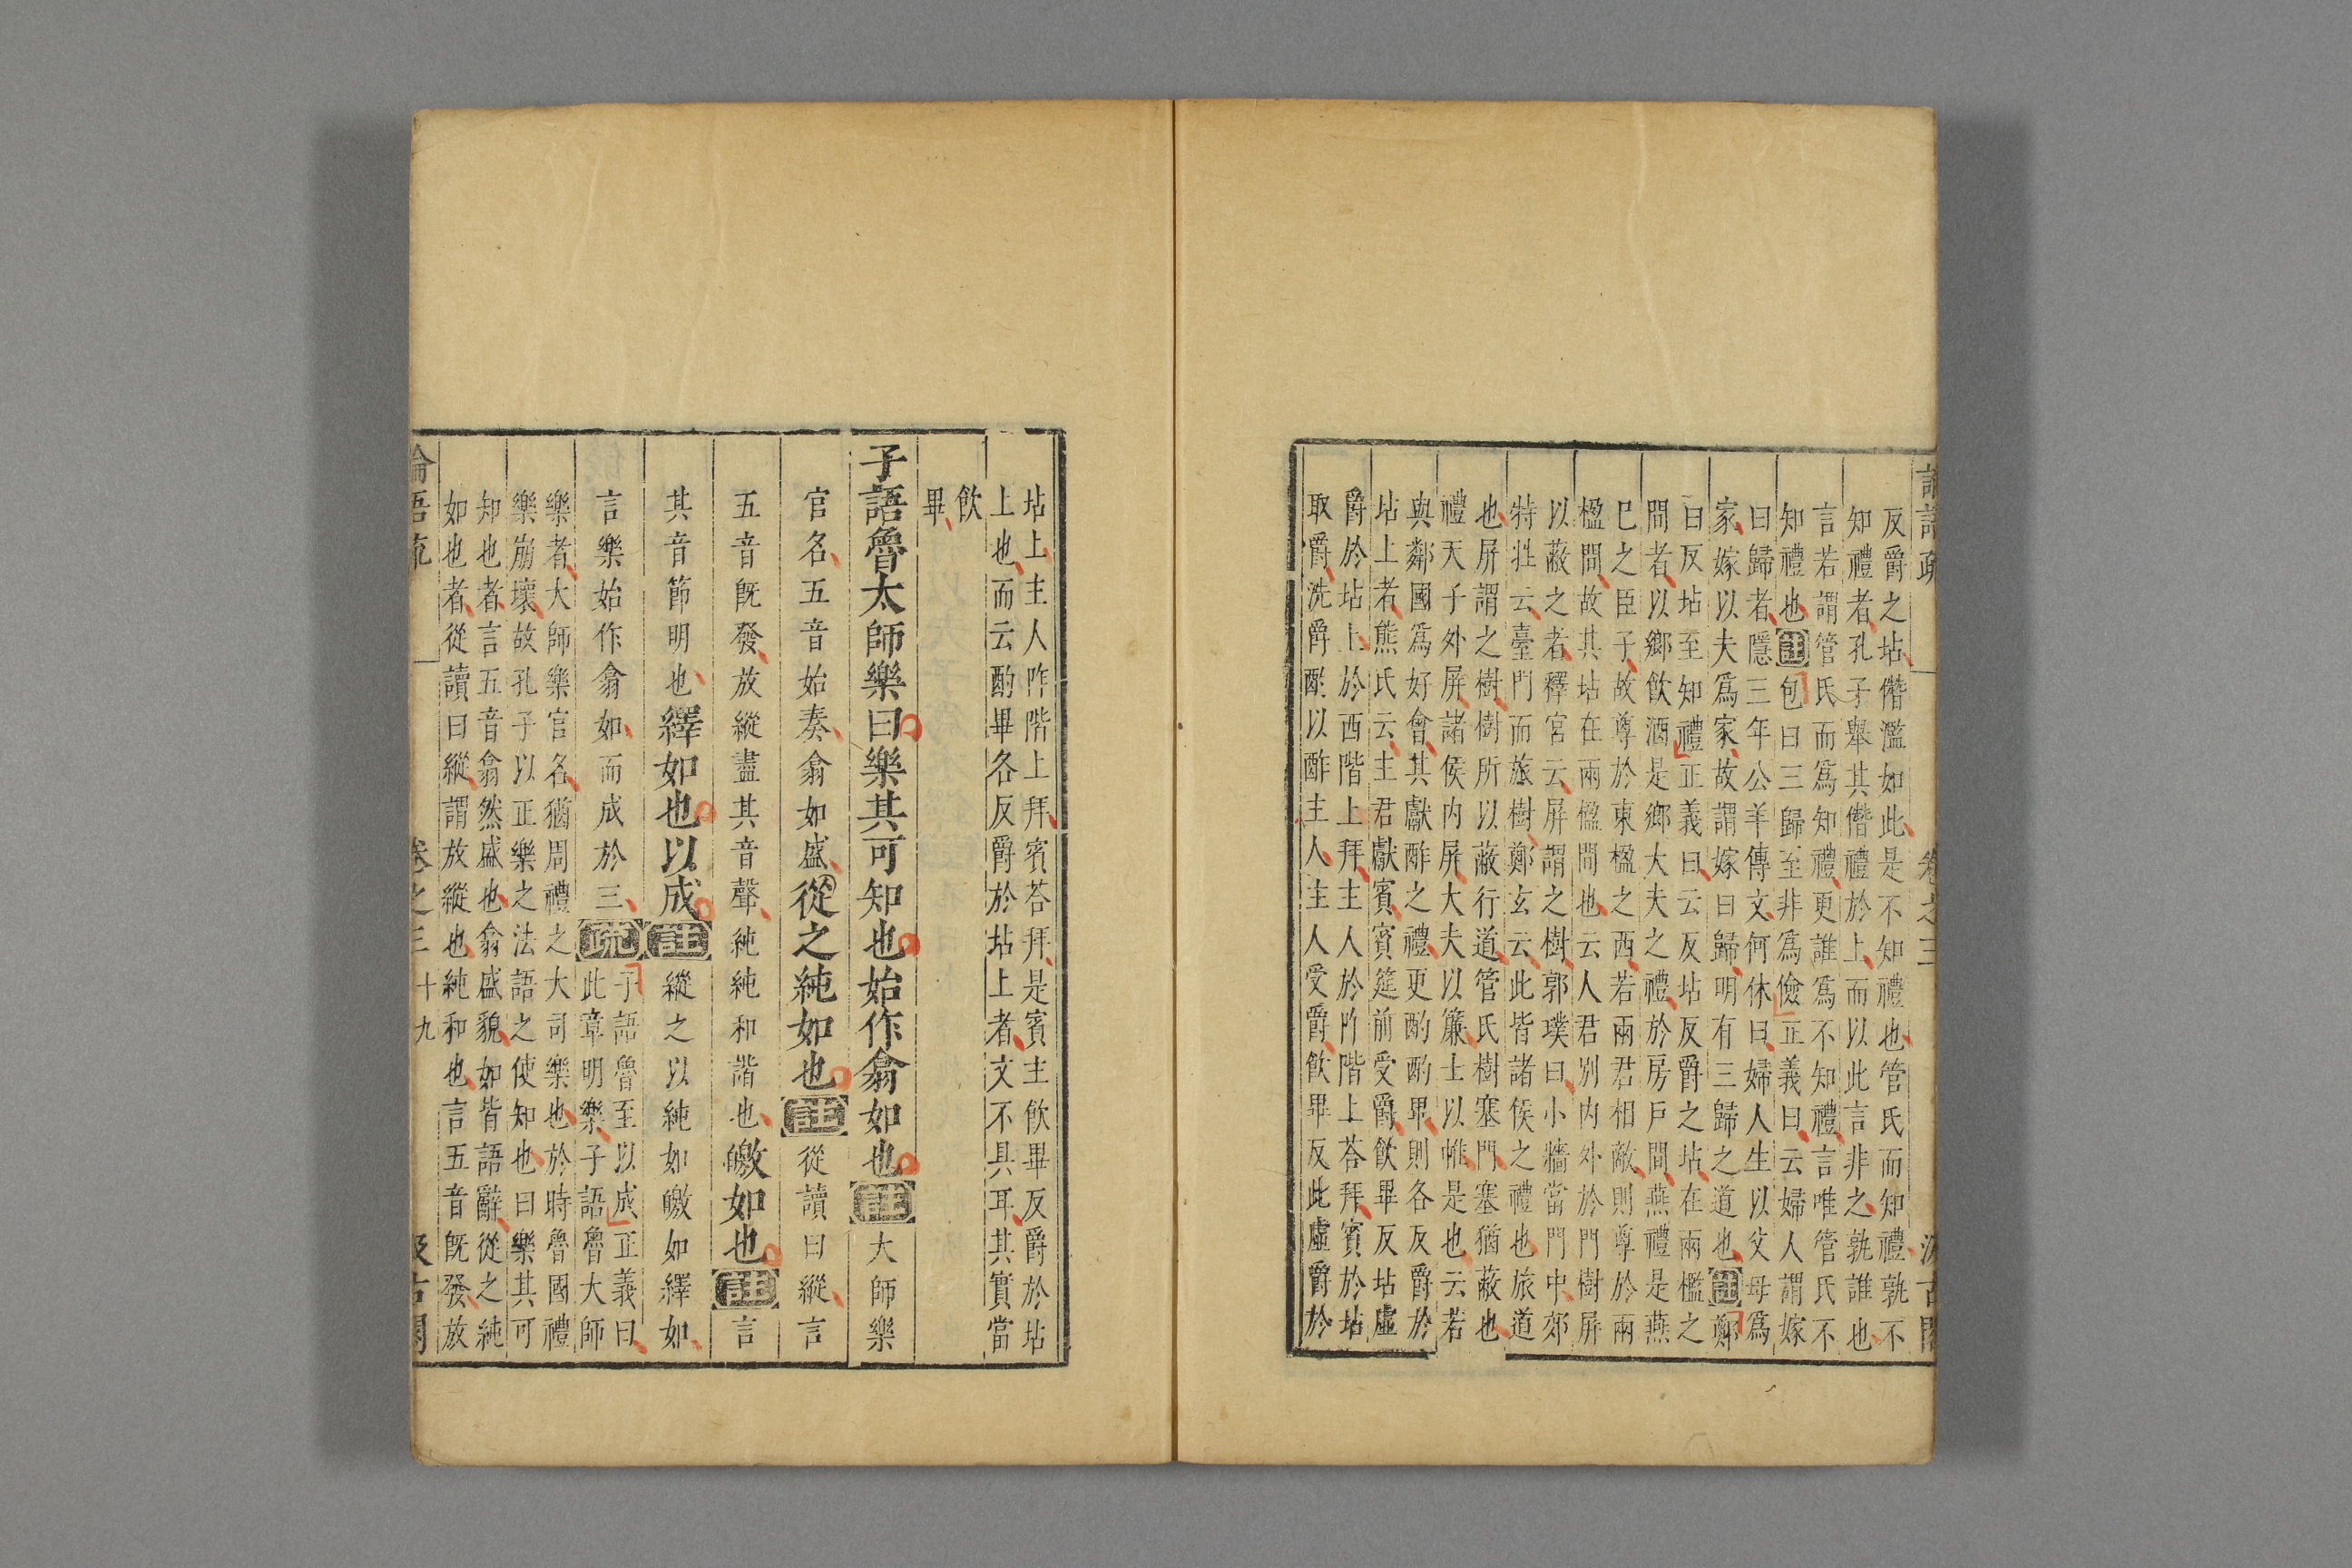 反爵之坫僭濫如此是不知禮也管氏而知禮孰不
知禮者孔子舉其僭禮於上而以此言非之孰誰也
言若謂管氏而為知禮更誰為不知禮言唯管氏不
知禮也註包曰三歸至非為儉正義曰云婦人謂嫁
曰歸者隱三年公羊傳文何休曰婦人生以父母為
家嫁以夫為家故謂嫁曰歸明有三歸之道也註鄭
曰反坫至知禮正義曰云反坫反爵之坫在兩楹之
間者以鄉飲酒是鄉大夫之禮於房戶間燕禮是燕
已之臣子故尊於東楹之西若兩君相敵則尊於兩
楹間故其坫在兩楹間也云人君別內外於門樹屏
以蔽之者釋宮云屏謂之樹郭璞曰小牆當門中郊
特牲云臺門而旅樹鄭玄云此皆諸侯之禮也旅道
也屏謂之樹樹所以蔽行道管氏樹塞門塞猶蔽也
禮天子外屏諸侯內屏大夫以簾士以帷是也云若
與鄰國為好會其獻酢之禮更酌酌畢則各反爵於
坫上者熊氏云主君獻賓賓筵前受爵飲畢反坫虛
爵於坫上於西階上拜主人於阼階上荅拜賓於坫
取爵洗爵酌以酢主人主人受爵飲畢反此虛爵於
坫上主人阼階上拜賓荅拜是賓主飲畢反爵於坫
上也而云酌畢各反爵於坫上者文不具耳其實當
飲
畢
子語魯太師樂曰樂其可知也始作翕如也註大師樂
官名五音始奏翕如盛從之純如也註從讀曰縱言
五音既發放縱盡其音聲純純和諧也皦如也註言
其音節明也繹如也以成註縱之以純如皦如繹如
言樂始作翕如而成於三疏
子語魯至以成正義曰
此章明樂子語魯大師
樂者大師樂官名猶周禮之大司樂也於時魯國禮
樂崩壞故孔子以正樂之法語之使知也曰樂其可
知也者言五音翕然盛也翕盛貌如皆語辭從之純
如也者從讀曰縱謂放縱也純和也言五音既發放
論語疏 卷之三 十九 汲古閣